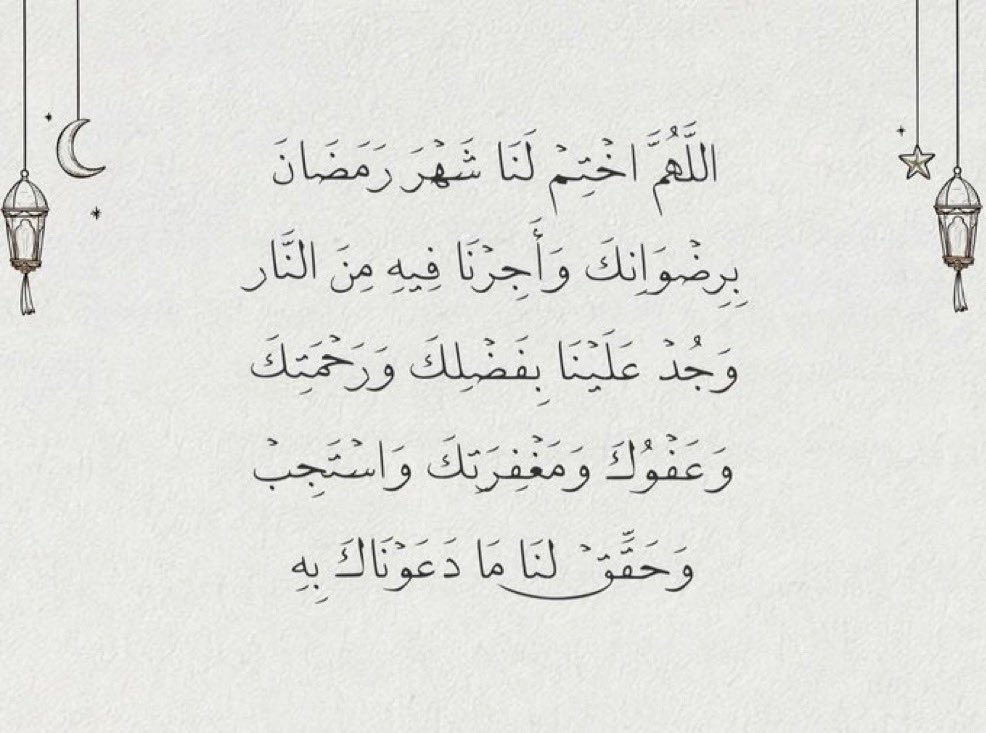 اللَّهُمَّ اخْتِمْ لَنَا شَهْرَ رَمَضَانَ
بِرِضْوَانِكَ وَأَجِرْنَا فِيهِ مِنَ النَّار
وَجُدْ عَلَيْنَا بِفَضْلِكَ وَرَحْمَتِكَ
وَعَفْوُكَ وَمَغْفِرَتِكَ وَاسْتَجِبْ
وَحَقِّقْ لَنَا مَا دَعَوْنَاكَ بِهِ